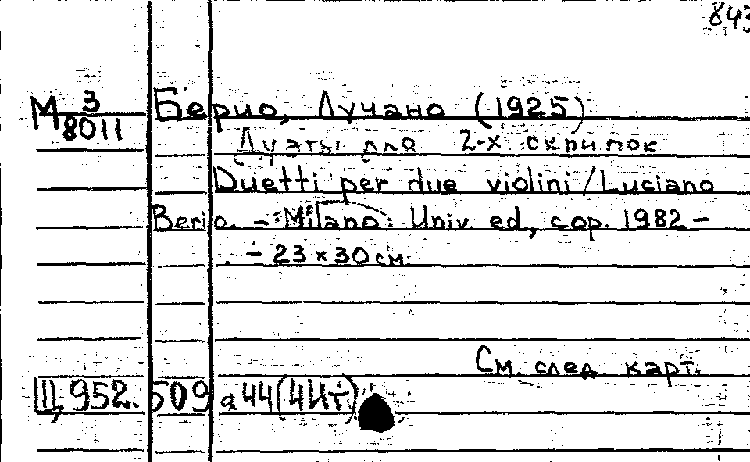 843
М 3 Берио, Лучано (1925)
8011
Дуэты для 2-х скрипок
Duetti per due violini / Luciano
Berio. – Milano: Univ. ed., cop. 1982 –
. – 23 × 30 см.
См. след. карт.
Ц, 952. 509 а 44 (4Ит)